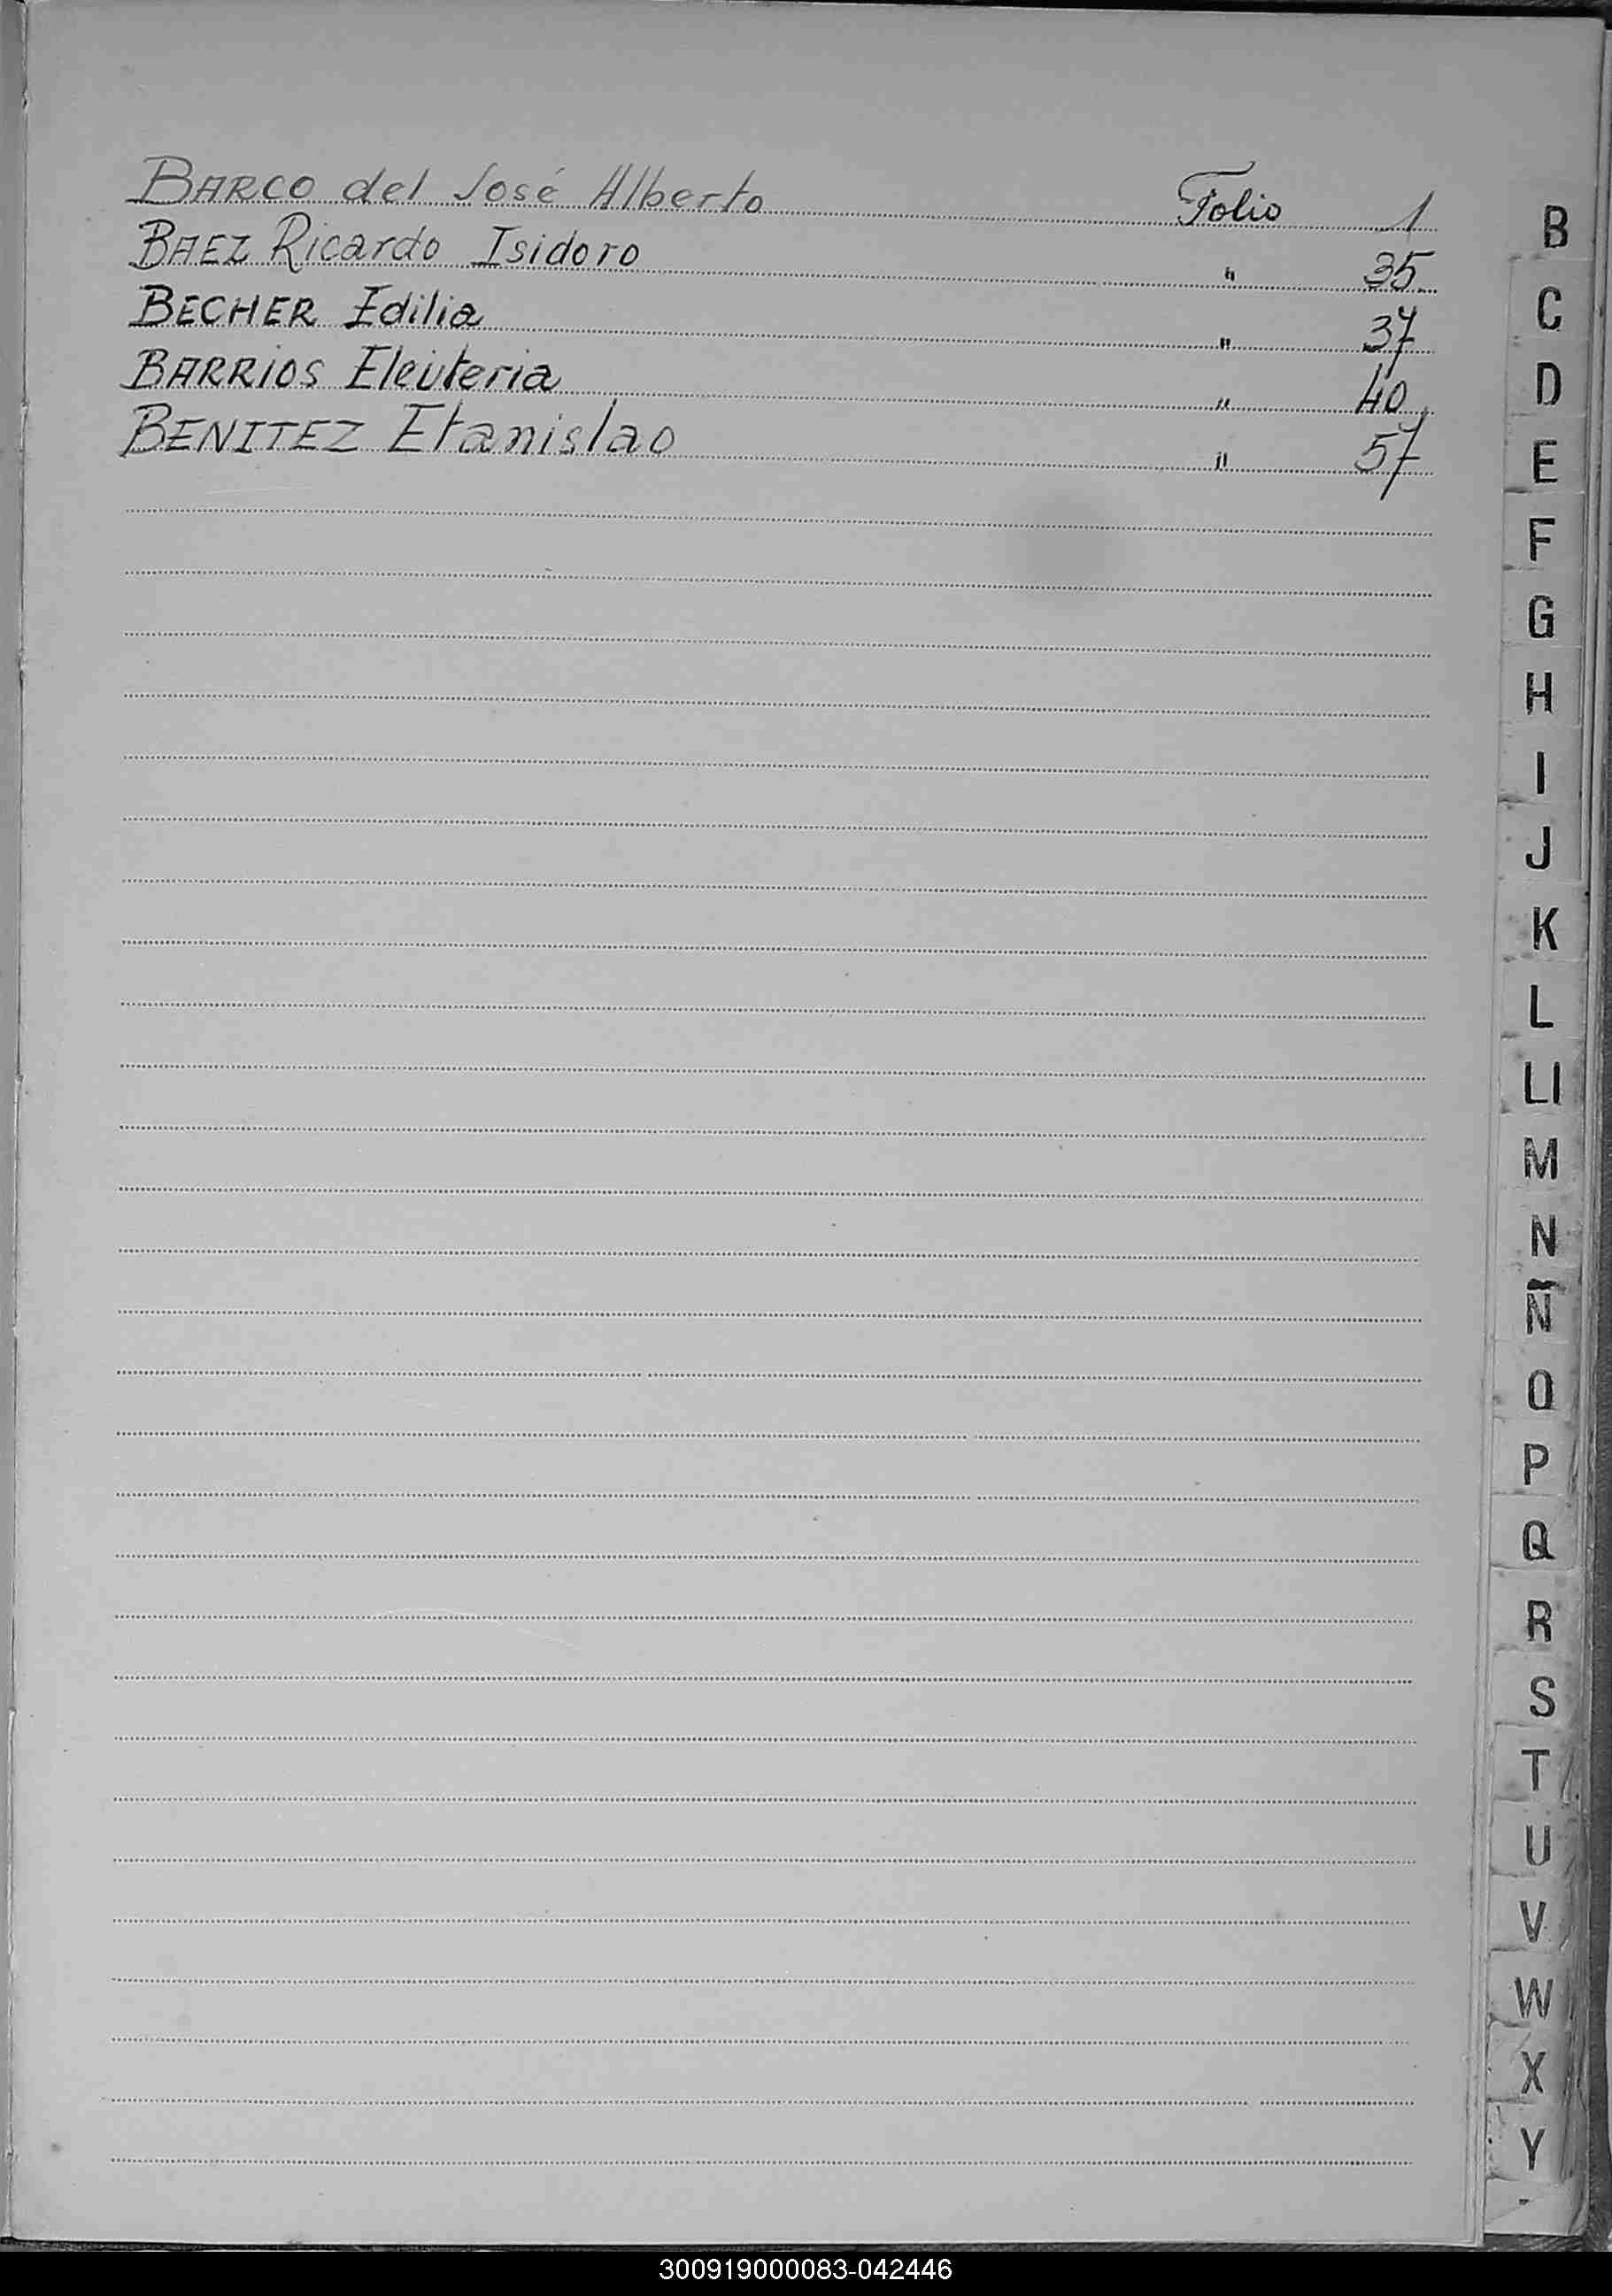 BARCO del José Alberto Folio 1
BAEZ Ricardo Isidoro " 35
BECHER Edilia " 37
BARRIOS Eleuteria " 40
BENITEZ Etanislao " 57
B
C
D
E
F
G
H
I
J
K
L
Ll
M
N
Ñ
O
P
Q
R
S
T
U
V
W
X
Y
300919000083-042446